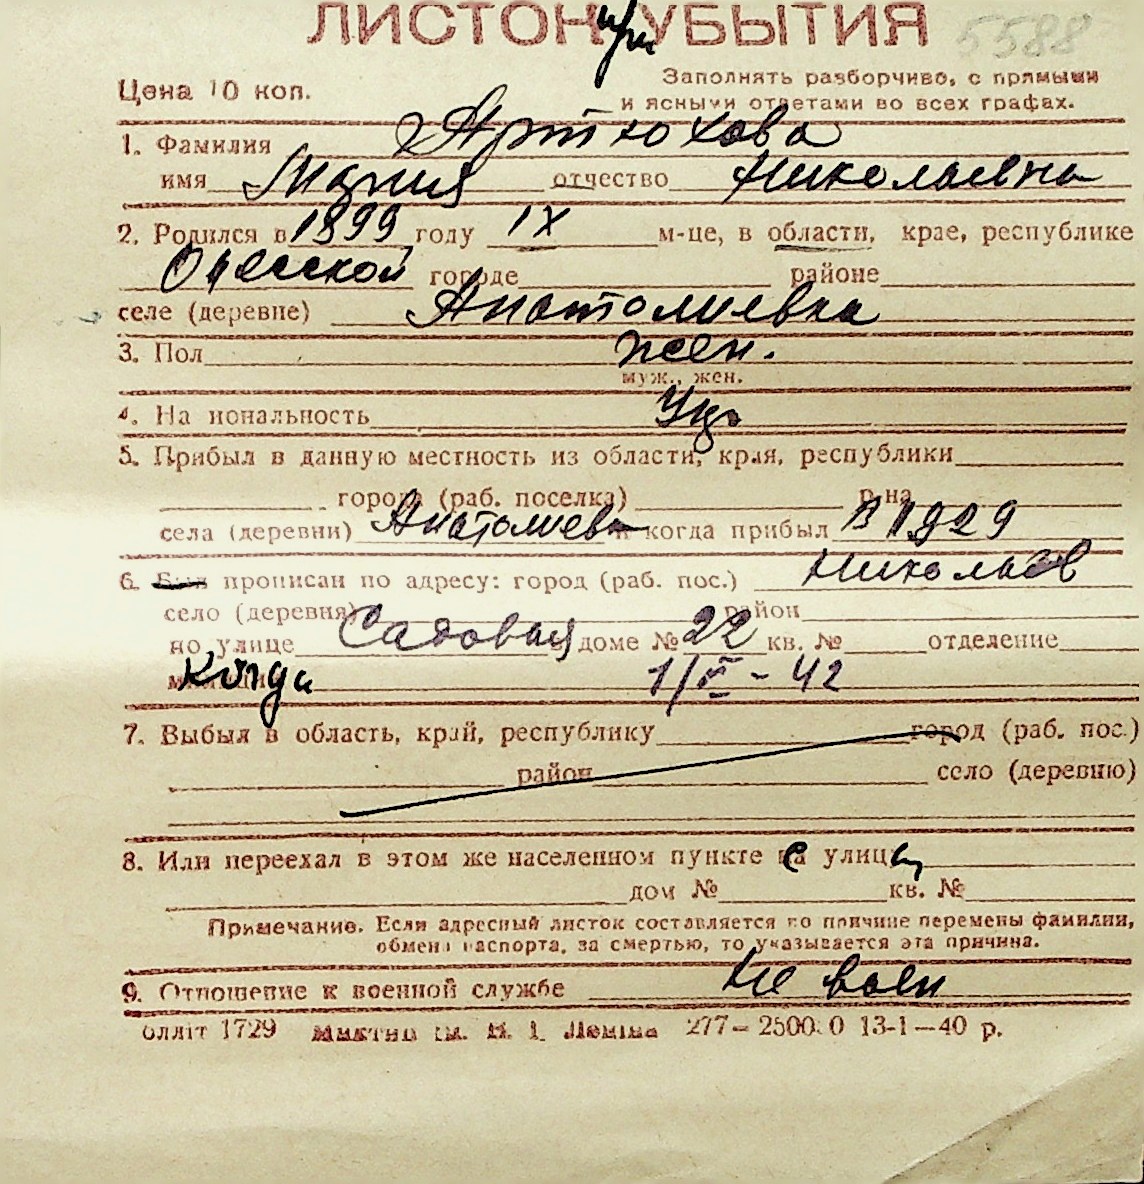 ЛИСТОК при УБЫТИЯ 5588
Цена 10 коп.
Заполнять разборчиво, с прямыми
и ясными ответами во всех графах.
1. Фамилия Артюхова
имя Мария отчество Николаевна
2. Родился в 1899 году IX м-це, в области, крае, республике
Одесской городе районе
селе (деревне) Анатолиевка
3. Пол жен.
муж., жен.
4. На иональность Укр
5. Прибыл в данную местность из области, края, республики
города (раб. поселка) р-на
села (деревни) Анатолиев когда прибыл В 1929
6. прописан по адресу: город (раб. пос.) Николаев
село (деревня) район
по улице Садовая доме № 22 кв. № отделение
Когда 1/ - 42
7. Выбыл в область, край, республику город (раб. пос.)
район село (деревню)
8. Или переехал в этом же населенном пункте с улицы
дом № кв. №
Примечание. Если адресный листок составляется по причине перемены фамилии,
обмена паспорта, за смертью, то указывается эта причина.
9. Отношение к военной службе Не воен
1729 277— 2500 0 13-1—40 р.